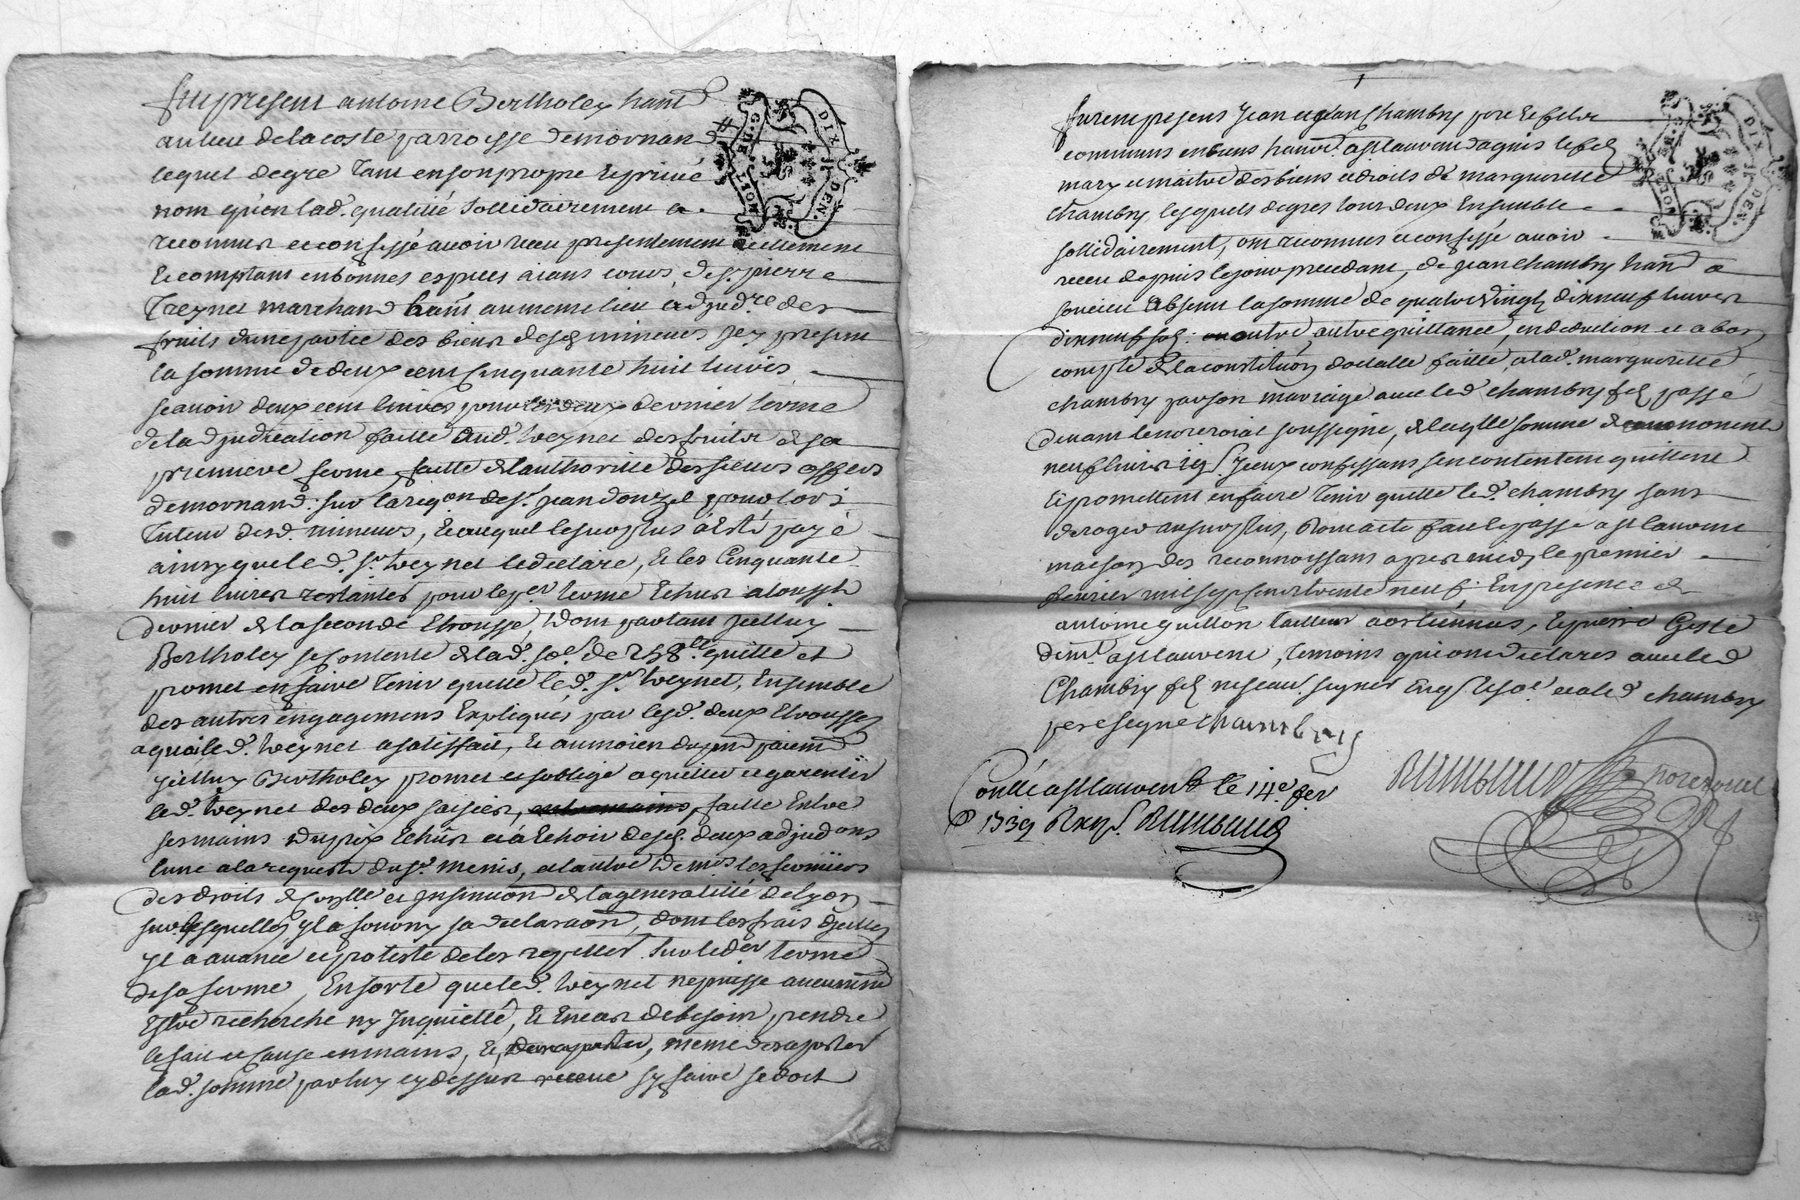 fut present antoine Bertholey hant
au lieu de la coste parroisse demornand
lequel degre tant en son propre et privé
nom qu'en lad. qualitté sollidairement a
reconnu et confessé avoir receu presentement reellement
et comptant en bonnes especes aiant cours, de sr pierre
Treynet marchand hant au meme lieu adjudre des
fruits d'une partie des biens desd mineurs jcy present
la somme de deux cent cinquante huit livres
scavoir deux cent livres pour deux dernier terme
de ladjudication faitte aud. treynet des fruits de sa
premiere ferme faitte de lauthoritté des sieurs officrs
demornand: sur la requon de sr jean donzel pour lors
tuteur desd. mineurs, et auquel le surplus a esté payé
ainsy que led. sr treynet le declare, et les Cinquante
huit livres restantes pour le per terme Echus a
dernier de la seconde Etrousse, dont partant jcelluy
Bertholey se contente de lad. sode de 258 lt quitte et
promet en faire tenir quitte led. sr treynet, Ensemble
des autres engagemens Expliqués par lesd. deux Etrousses
a quoi led. treynet a satisfait, et au moien du pnt paiemt
jcelluy Bertholey promet et soblige a quitter et garentir
led. treynet des deux saisies, faitte Entre
ses mains du prix Echus et a Echoir desd. deux adjudons
lune a la requeste du sr. menis, et lautre de mrs les fermiers
des droits de controlle et jnsinuaon de la generalitté de lyon
sur lesquelles jl a fourny sa declaraon, dont les frais d'jcelles
jl a avancé et proteste de les repeter sur le der terme
de sa ferme, En sorte que led. treynet ne puisse aucunemt
Estre recherché ny jnquietté, et En cas de besoin prendre
le fait et Cause en mains, et, meme de raporter
lad. somme par luy cy dessus receue sy faire se doit
furent presens jean et jean Chambry pere et fils
communs en biens hants. a st lauvent dagnis le fils
mary et maitre des biens et droits de margueritte
Chambry lesquels degres tous deux Ensemble
sollidairement, ont reconnus et confessé avoir
receu depuis le jour precedant, de jean Chambry hant a
soucieu absent la somme de quatre vingt dixneuf livres
dixneuf sols outre autre quittance, en deduction et a bon
compte de la constitution dotalle faitte, a lad. margueritte
chambry par son mariage avec led chambry fils passé
devant le nore roial soussigné, de laqlle somme de nonente
neuf livres 19 s jceux confessans sen contentent quittent
et promettent en faire tenir quitte led. chambry sans
deroger au surplus, dont acte fait et passé a st lauvent
maison des reconnoissans apres midy le premier
fevrier mil sept cent trente neuf. En presence de
antoine guillon tailleur a orliennas, et pierre Geste
demt. a st lauvent, temoins qui ont declarés avec led
Chambry fils ne scavoir signer Enqs. et some et a led. chambry
pere signe chambry
Conllé a st lauvent le 14e fer
1739 Rimbaud
Rimbaud nore royal
G.NLE MOY. DIX DEN.
G.NLE MOY. DIX DEN.